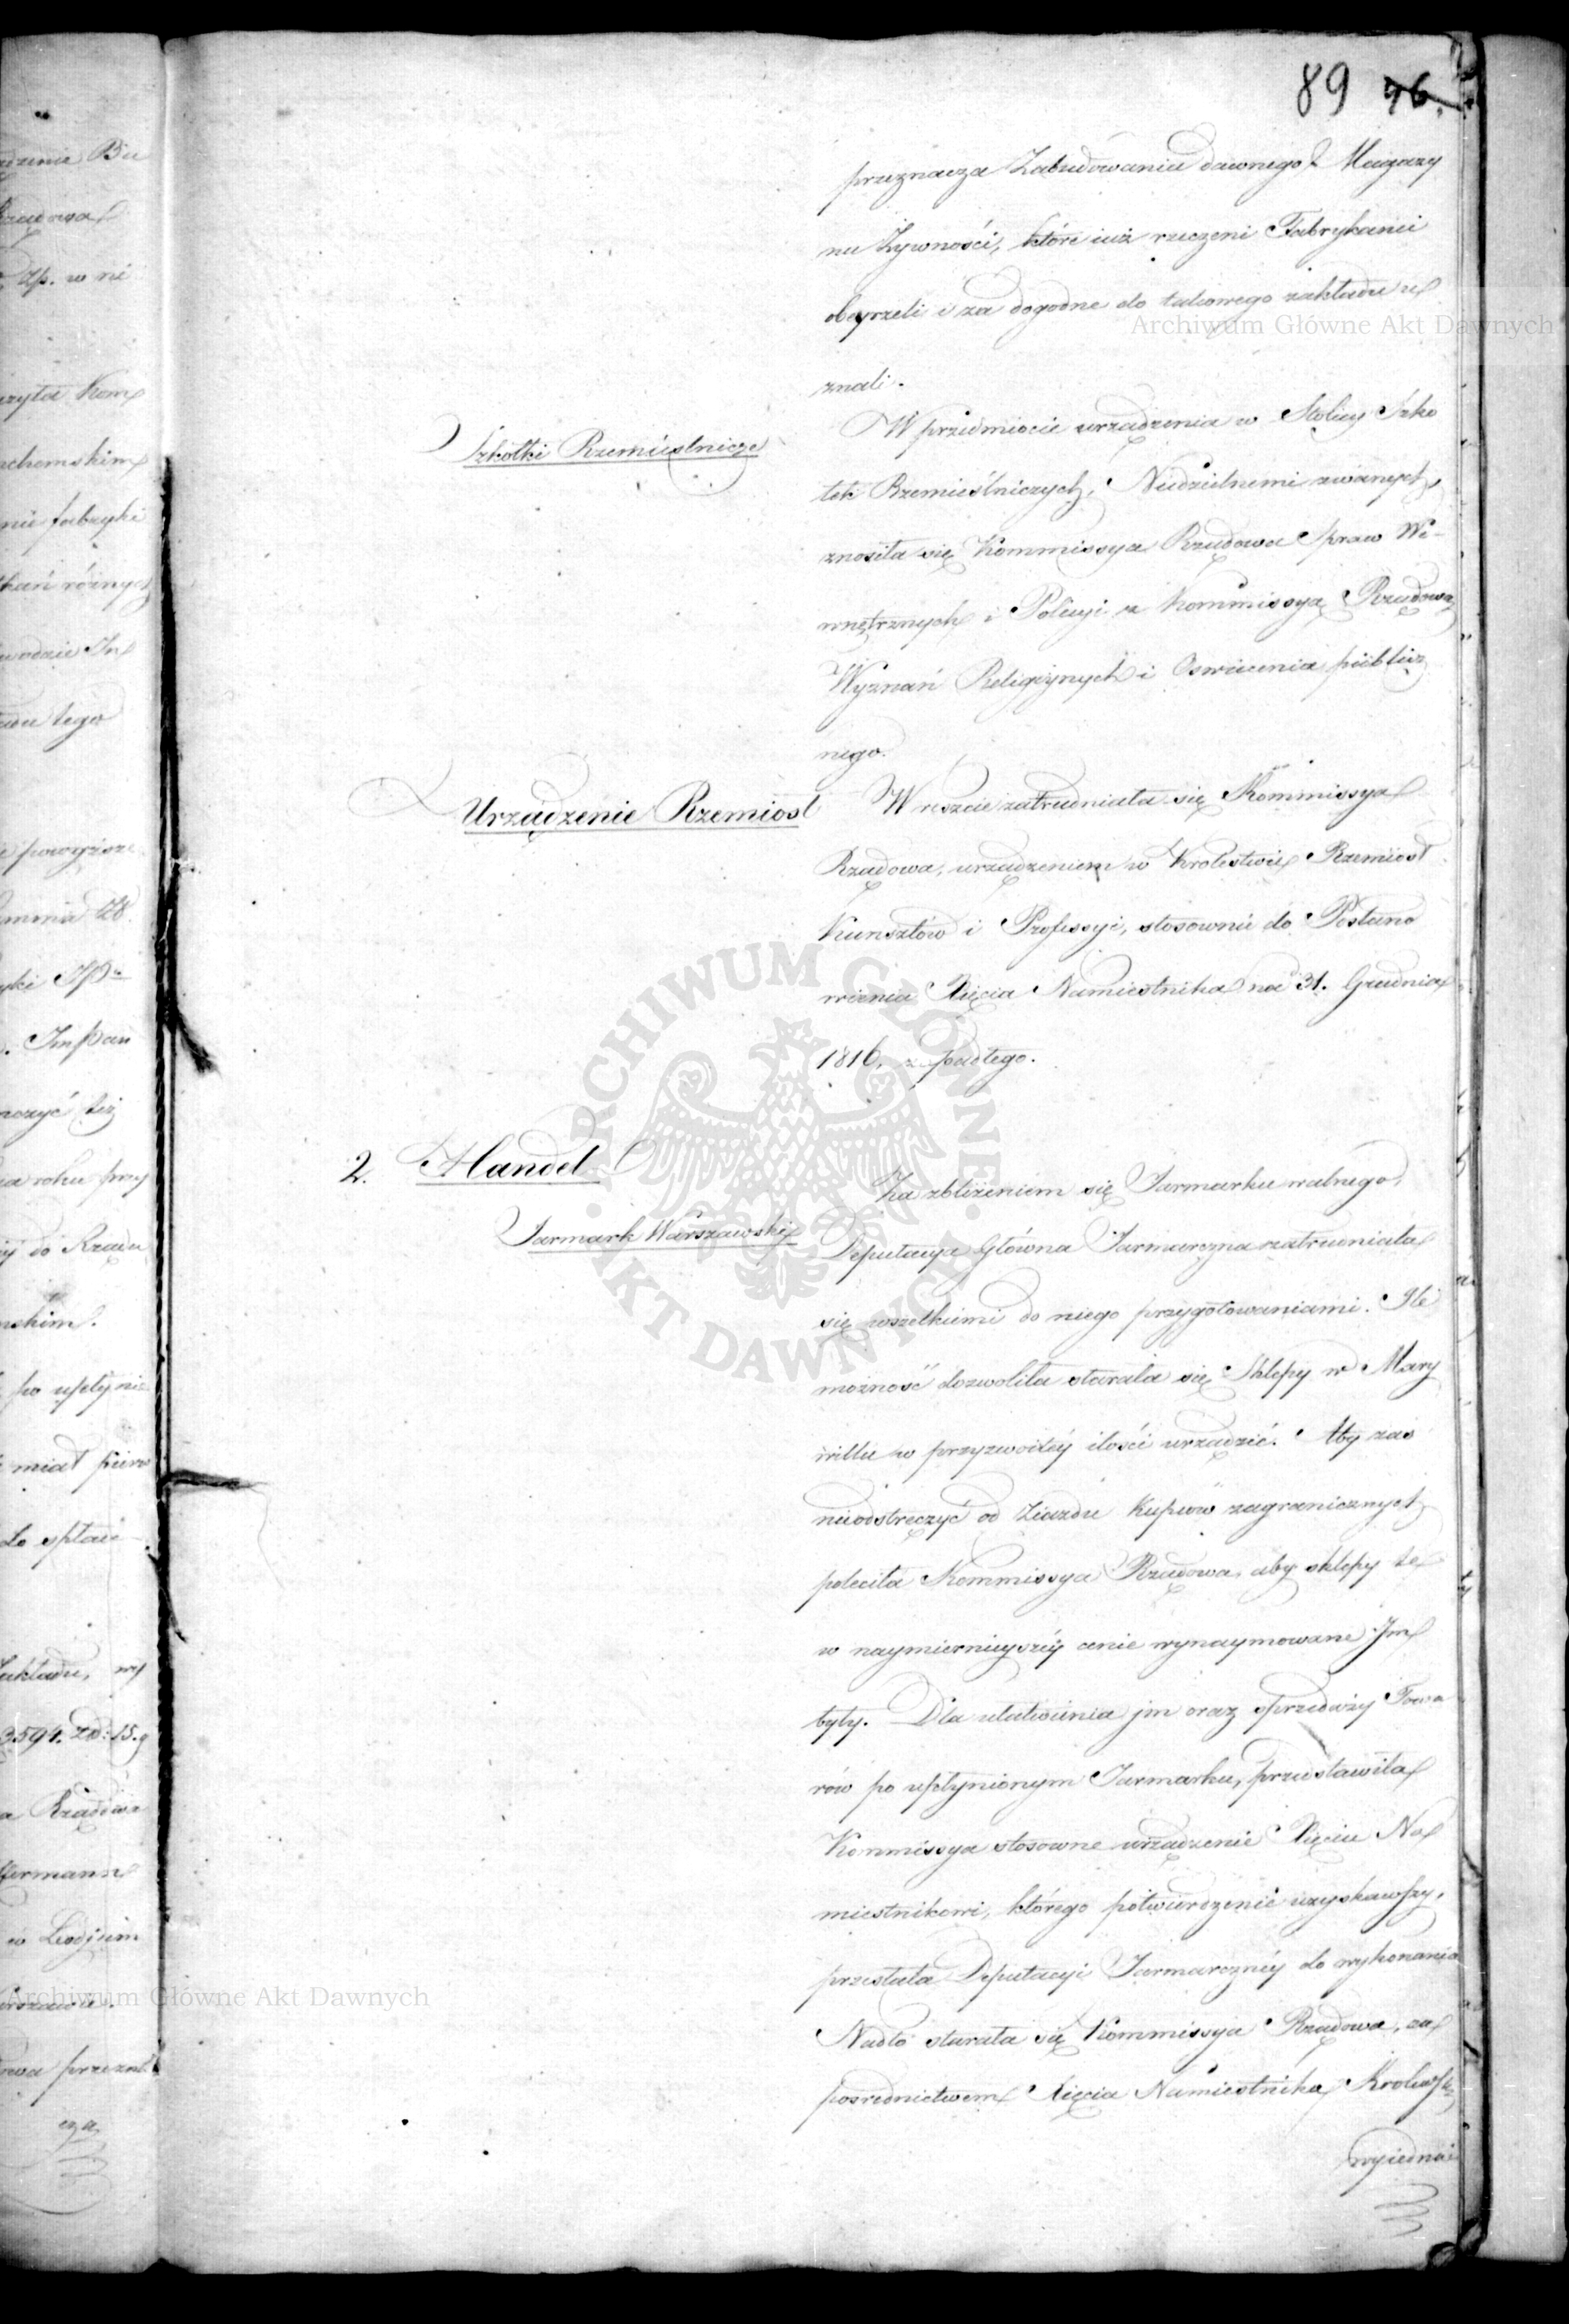 89 96.
przeznacza Zabudowania dawnego Magazy
nu Żywności, które iuż rzeczeni Fabrykanci
obeyrzeli i za dogodne do takowego zakładu u
znali.
Szkółki Rzemieślnicze
W przedmiocie urządzenia w Stolicy Szkó
łek Rzemieślniczych, Niedzielnemi zwanych,
znosiła się Kommissya Rządowa Spraw We-
wnętrznych i Policyi z Kommissyą Rządową
Wyznań Religijnych i Oswiecenia publicz
nego.
Urządzenie Rzemiosł
W reszcie zatrudniała się Kommissya
Rządowa, urządzeniem w Krolestwie Rzemiosł
Kunsztów i Professyi, stosownie do Postano
wienia Xięcia Namiestnika na 31. Grudnia
1816, zapadłego.
2. Handel
Jarmark Warszawski
Za zbliżeniem się Jarmarku walnego,
Deputacya Główna Jarmarczna zatrudniała
się wszelkiemi do niego przygotowaniami. Ile
możność dozwoliła starała się Sklepy w Mary
willu w przyzwoitéy ilości urządzić. Aby zaś
nieodstręczyć od Ziazdu Kupców zagranicznych
poleciła Kommissya Rządowa, aby sklepy te
w naymiernieyszéy cenie wynaymowane Jm
były. Dla ułatwienia jm oraz sprzedaży Towa
rów po upłynionym Jarmarku, przedstawiła
Kommissya stosowne urządzenie Xięciu Na
miestnikowi, którego potwierdzenie uzyskawszy,
przesłała Deputacyi Jarmarcznéy do wykonania
Nadto starała się Kommissya Rządowa, za
pośrednictwem Xięcia Namiestnika Krolewsk:
wyiednać
Archiwum Główne Akt Dawnych
ARCHIWUM GŁÓWNE AKT DAWNYCH
Archiwum Główne Akt Dawnych